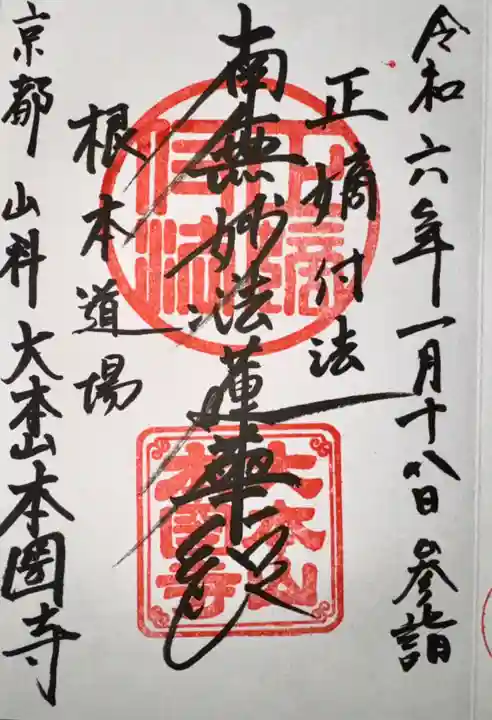 令和六年一月十八日 参詣
正嫡付法
南無妙法蓮華経
根本道場
京都 山科 大本山本圀寺
正嫡付法
大本山本圀寺